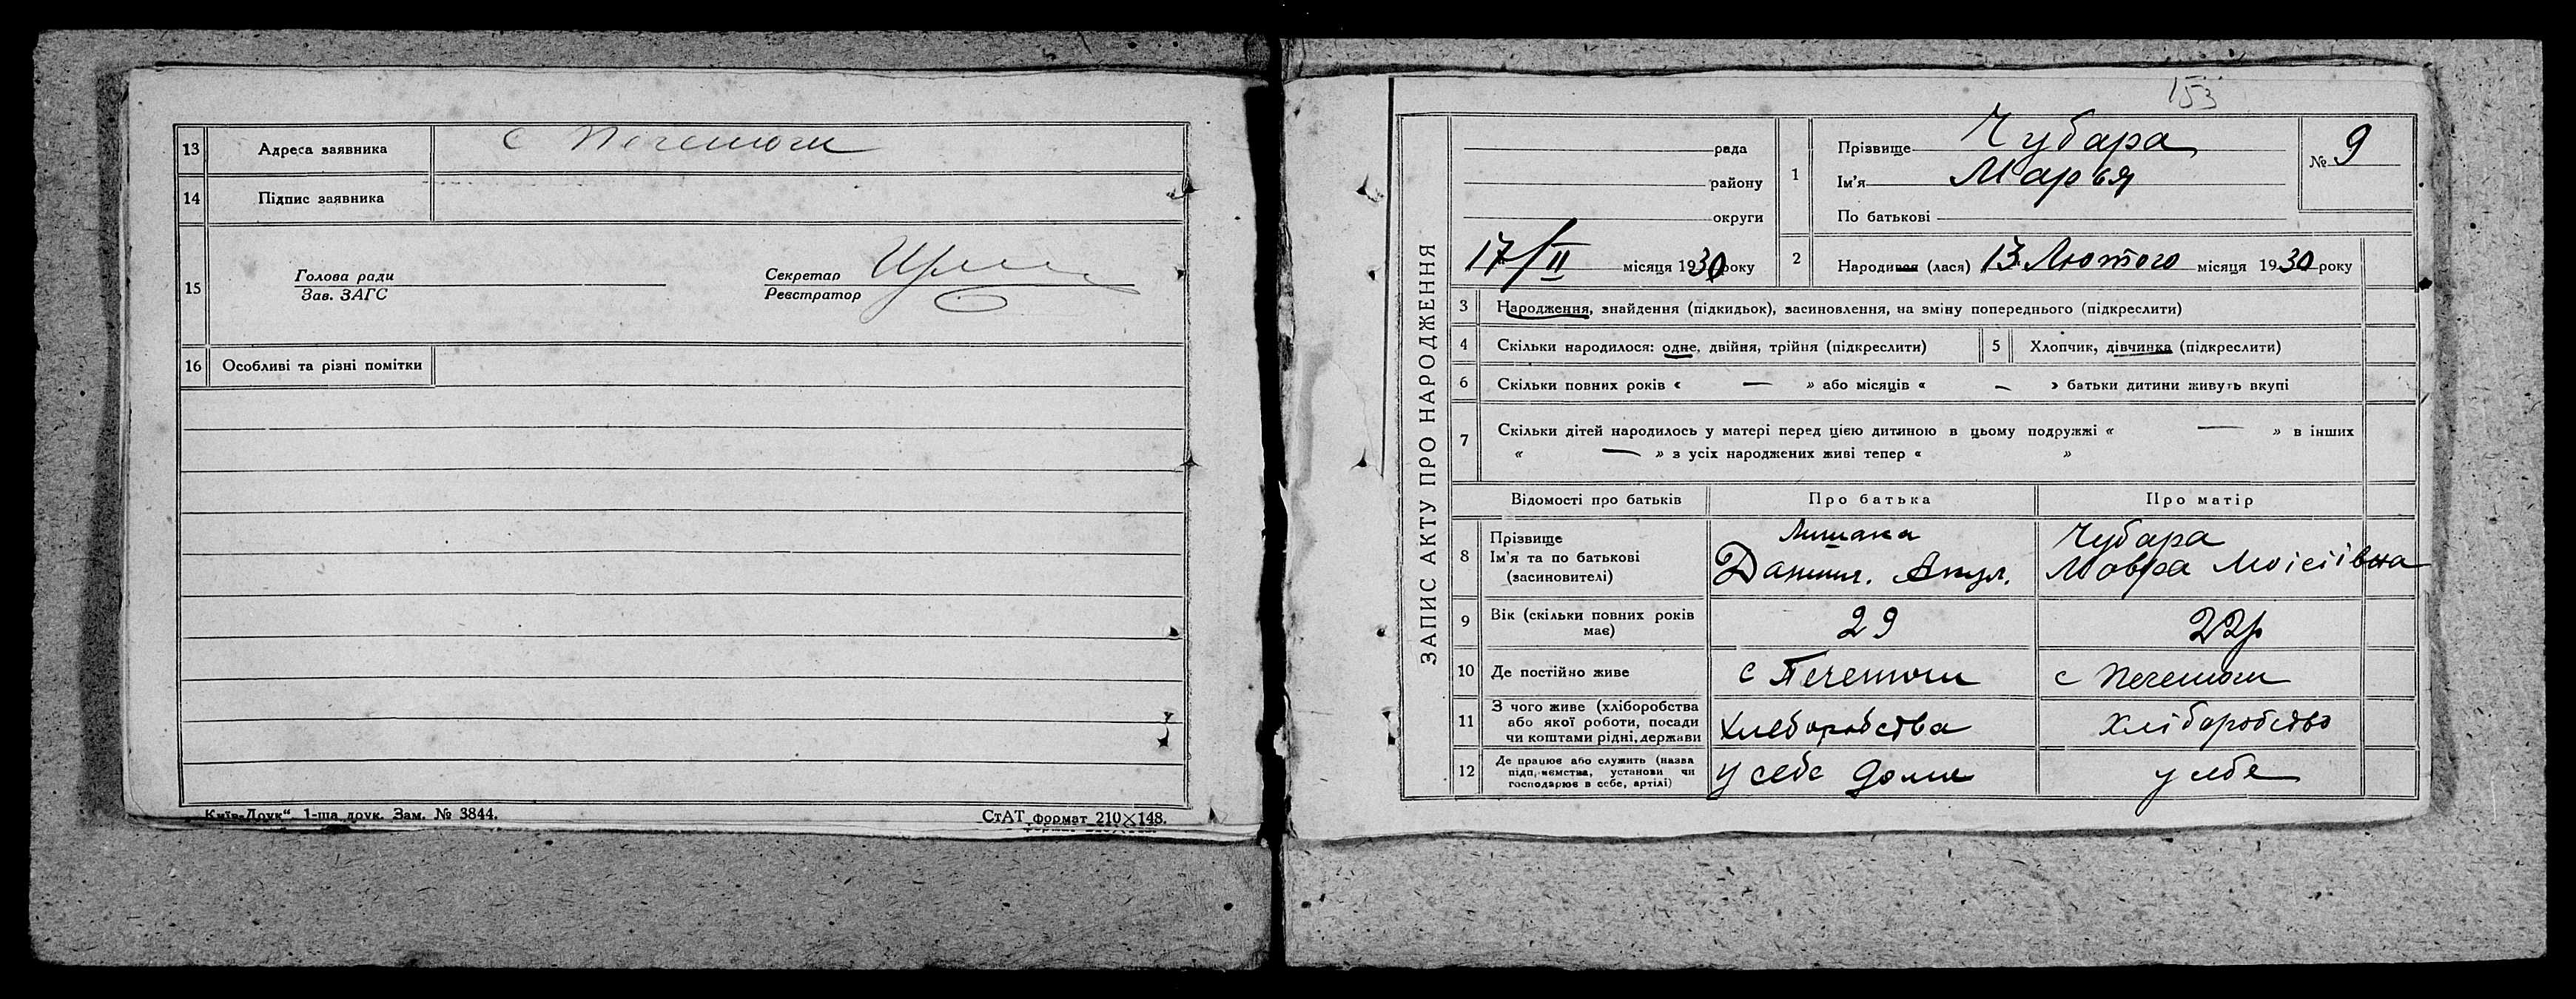 13 Адреса заявника с Печенюги
14 Підпис заявника
15 Голова ради
Зав. ЗАГС
Секретар
Реєстратор
16 Особливі та різні помітки
„Київ-Друк“. 1-ша друк. Зам. № 3844.
СтАТ формат 210×148.
153
ЗАПИС АКТУ ПРО НАРОДЖЕННЯ
рада
району
округи
17/II місяця 1930 року
1 Прізвище Чубара
Ім'я Марья
По батькові
№ 9
2 Народився (лася) 13 Лютого місяця 1930 року
3 Народження, знайдення (підкидьок), засиновлення, на зміну попереднього (підкреслити)
4 Скільки народилося: одне, двійня, трійня (підкреслити)
5 Хлопчик, дівчинка (підкреслити)
6 Скільки повних років « — » або місяців « — » батьки дитини живуть вкупі
7 Скільки дітей народилось у матері перед цією дитиною в цьому подружжі « — » в інших
« — » з усіх народжених живі тепер « »
Відомості про батьків Про батька Про матір
8 Прізвище
Ім'я та по батькові
(засиновителі)
Данил.
Чубара
Мовра Моісіївна
9 Вік (скільки повних років
має)
29
22р
10 Де постійно живе с Печенюги с Печенюги
11 З чого живе (хліборобства
або якої роботи, посади
чи коштами рідні, держави
Хлеборобства
Хліборобство
12 Де працює або служить (назва
підпріємства, установи чи
господарює в себе, артілі)
у себе дома
у себе